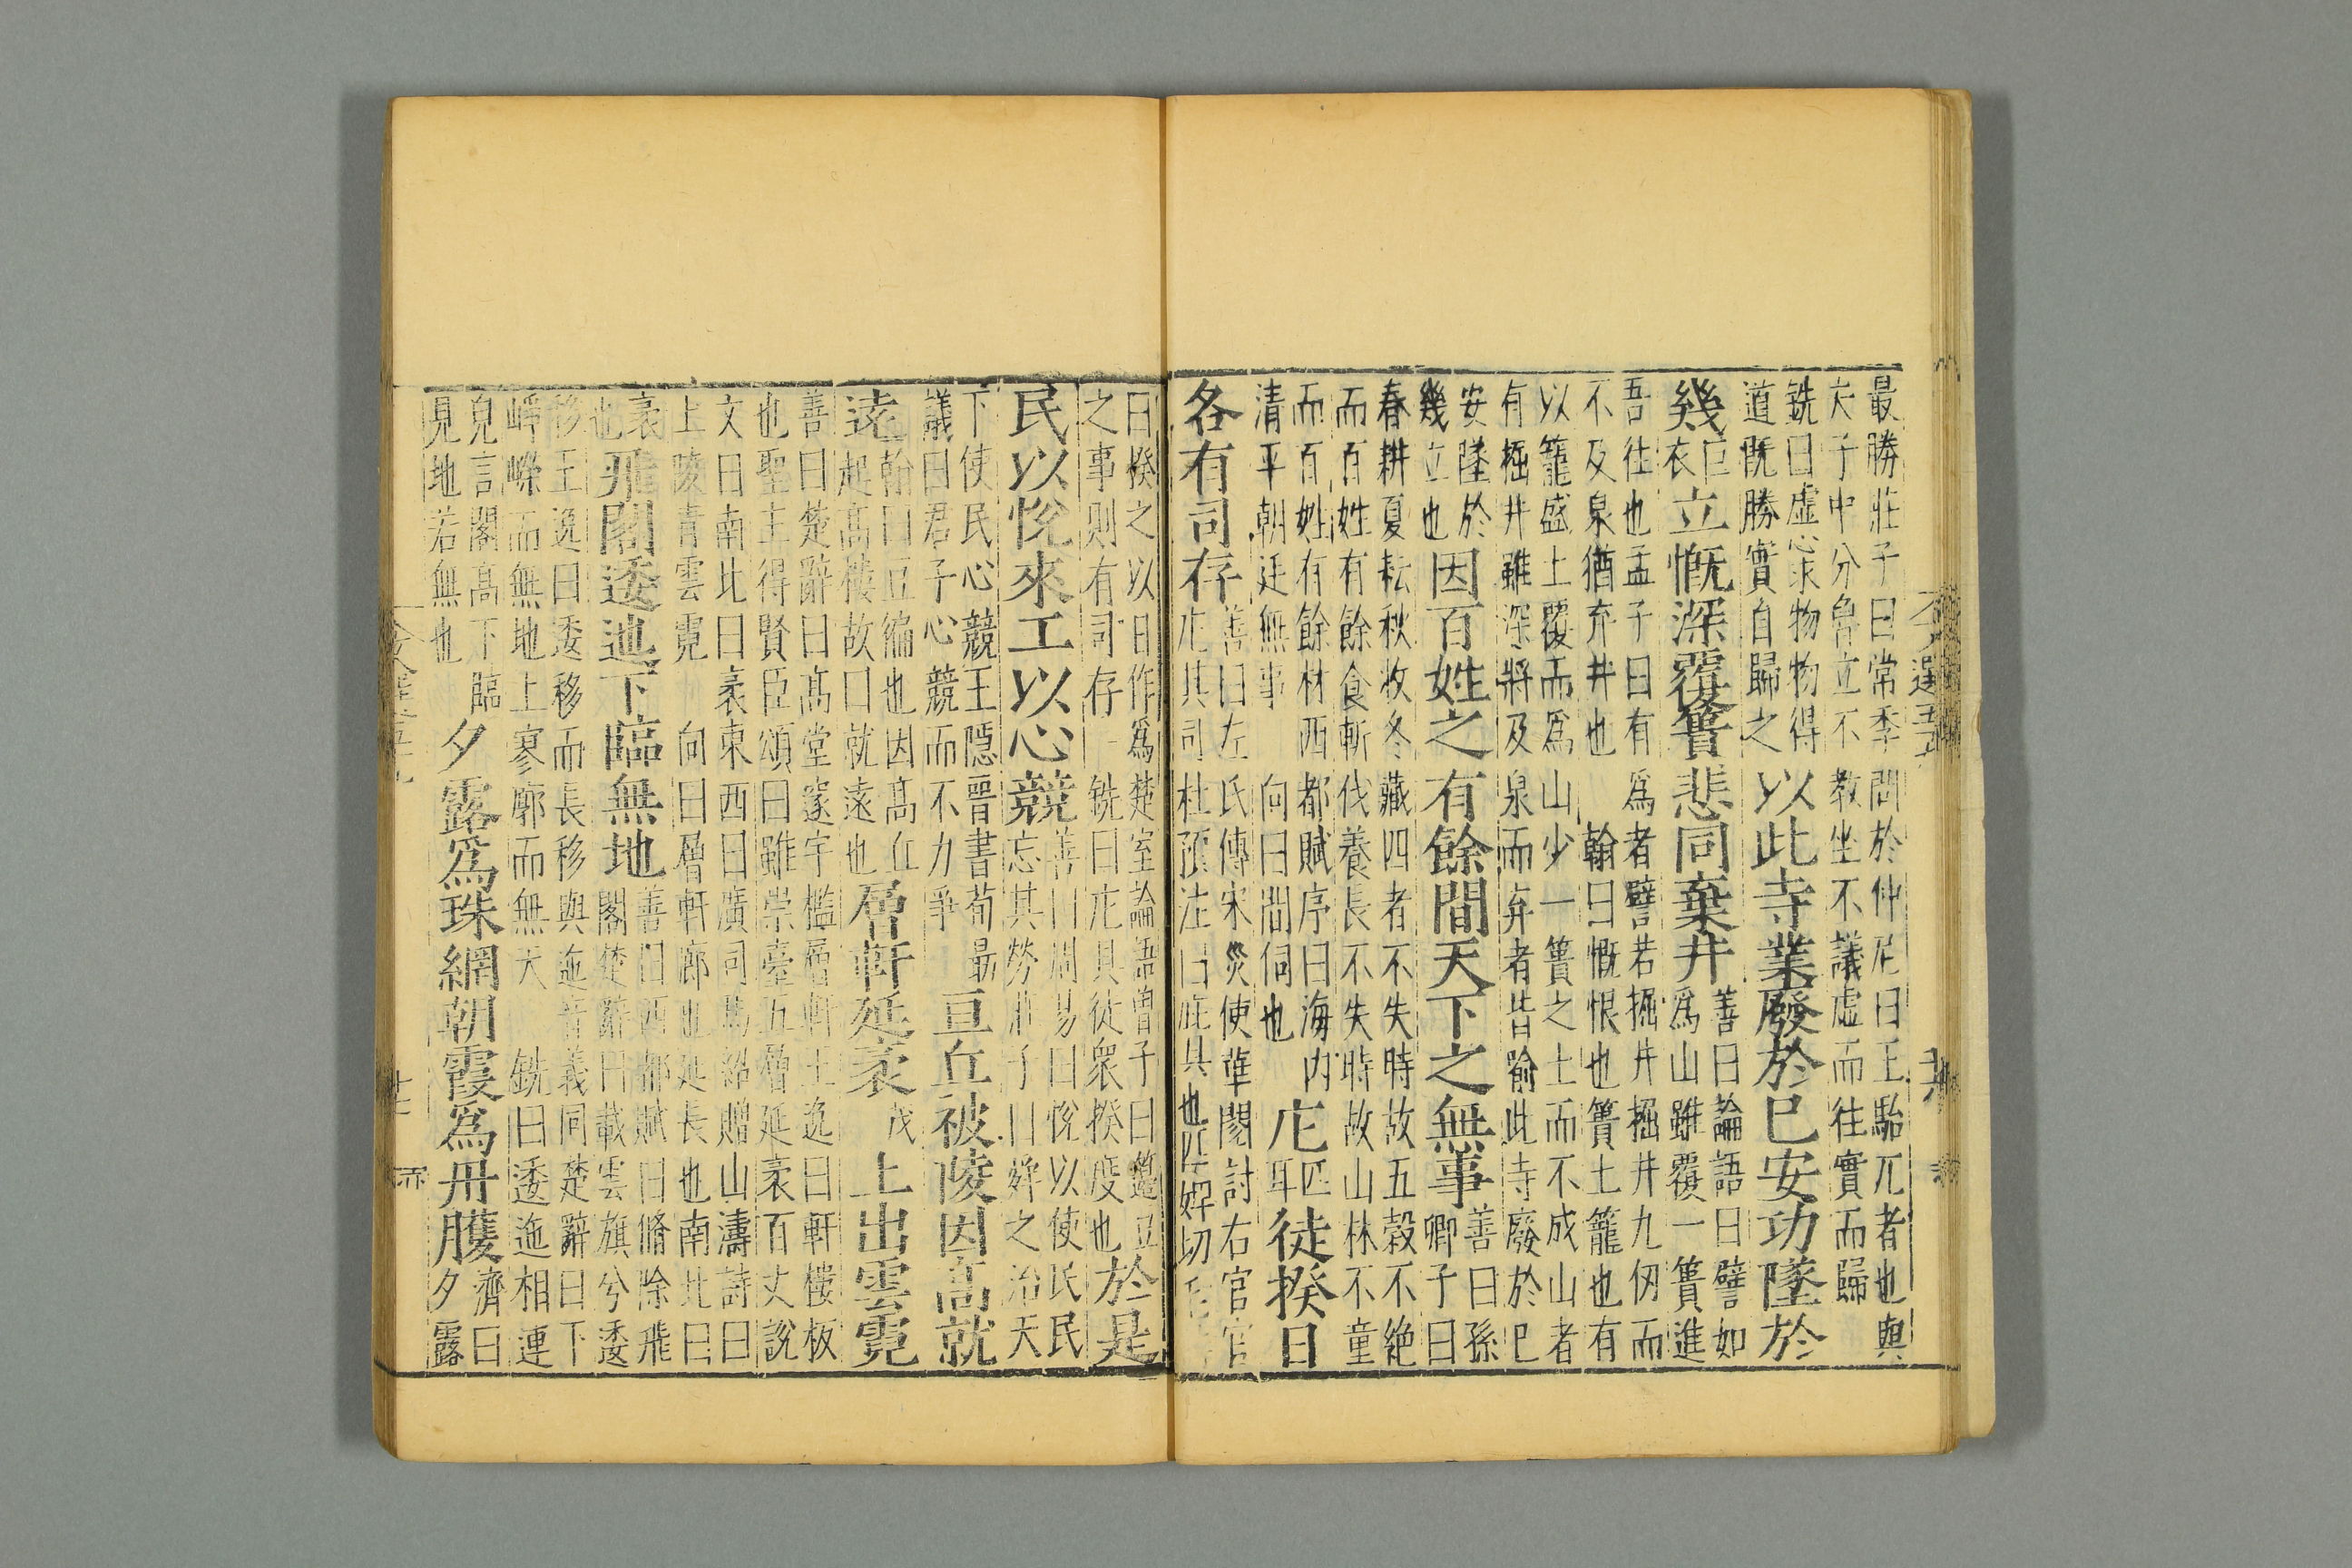 最勝莊子曰常季問於仲尼曰王駘兀者也與
夫子中分魯立不教坐不議虛而往實而歸
銑曰虛心求物物得
道旣勝實自歸之
以此寺業廢於巳安功墜於
幾
巨
衣
立慨深覆簣悲同棄井
善曰論語曰譬如
爲山雖覆一簣進
吾往也孟子曰有爲者譬若掘井掘井九仞而
不及泉猶弃井也翰曰慨恨也簣土籠也有
以籠盛土覆而爲山少一簣之土而不成山者
有掘井雖深將及泉而弃者皆喻此寺廢於巳
安墜於
幾立也
因百姓之有餘間天下之無事
善曰孫
卿子曰
春耕夏耘秋收冬藏四者不失時故五穀不絶
而百姓有餘食斬伐養長不失時故山林不童
而百姓有餘材西都賦序曰海內
清平朝廷無事向曰間伺也
庀
匹
耳
徒揆日
各有司存
善曰左氏傳宋災使華閱討右官官
庀其司杜預注曰庀具也匹婢切
曰揆之以日作爲楚室論語曾子曰籩豆
之事則有司存銑曰庀具徒衆揆度也
於是
民以悅來工以心競
善曰周易曰悅以使民民
忘其勞莊子曰舜之治天
下使民心競王隱晉書荀勗
議曰君子心競而不力爭
亘丘被陵因高就
遠
翰曰亘編也因高丘
起高樓故曰就遠也
層軒延袤
茂
上出雲霓
善曰楚辭曰高堂邃宇檻層軒王逸曰軒樓板
也聖主得賢臣頌曰雖崇臺五層延袤百丈說
文曰南北曰袤東西曰廣司馬紹贈山濤詩曰
上陵青雲霓向曰層軒廊也延長也南北曰
袤
也
飛閣逶迤下臨無地
善曰西都賦曰脩除飛
閣楚辭曰載雲旗兮逶
移王逸曰逶移而長移與迤音義同楚辭曰下
崢嶸而無地上寥廓而無天銑曰逶迤相連
皃言閣高下臨
見地若無也
夕露爲珠網朝霞爲丹雘
濟曰
夕露